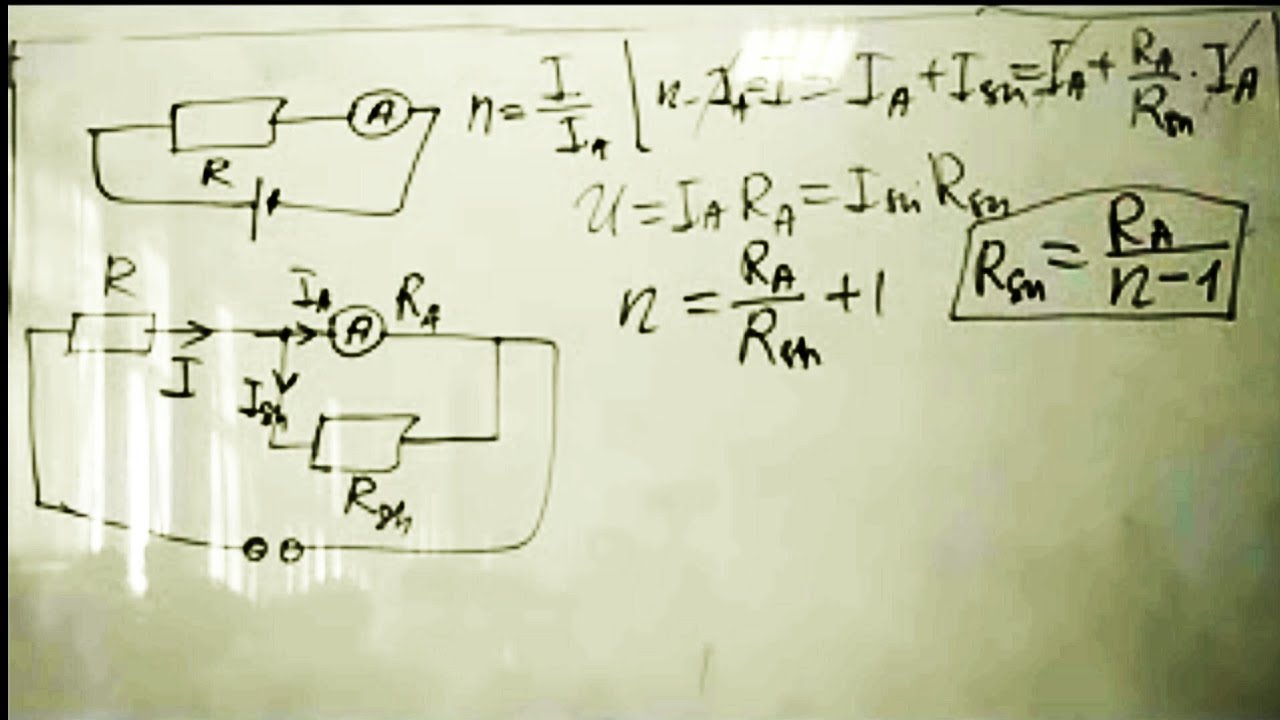 A
R
n = I/I_A | n·I_A = I = I_A + I_sh = I_A + R_A/R_sh · I_A
U = I_A R_A = I_sh R_sh
n = R_A/R_sh + 1
R_sh = R_A/(n-1)
R
I_A
R_A
A
I
I_sh
R_sh